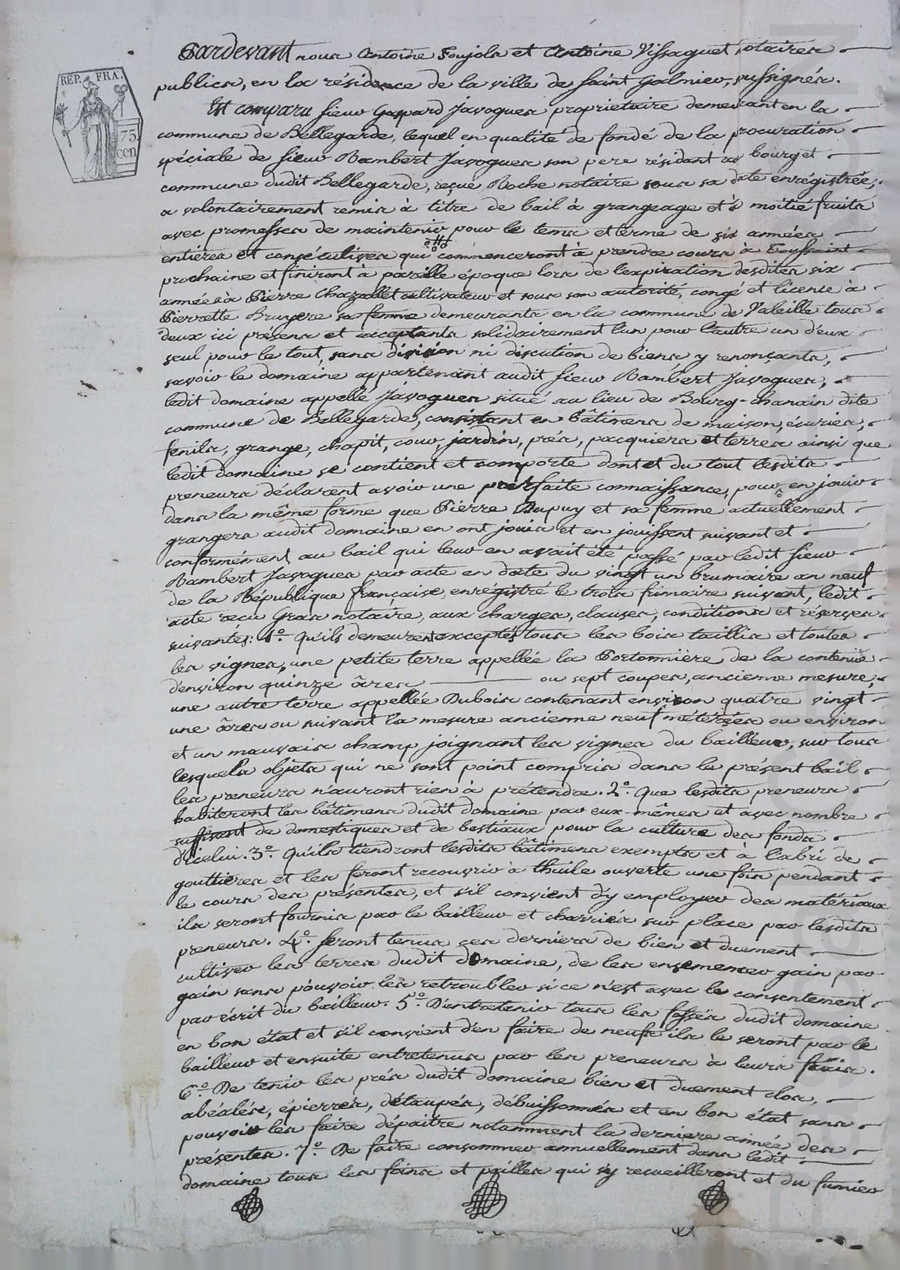 RÉP. FRA.
75 cen
Pardevant nous Antoine Soujols et Antoine Vissaguet, notaires
publics, en la résidence de la ville de Saint Galmier, soussignés.
Est comparu sieur Gaspard Javogues propriétaire demeurant en la
commune de Bellegarde, lequel en qualité de fondé de la procuration
spéciale de sieur Rambert Javogues son pere résidant au bourg et
commune dudit Bellegarde, reçue Roche notaire sous sa date enregistrée,
a volontairement remis à titre de bail à grangeage et à moitié fruits
avec promesses de maintenir pour le tems et terme de six années
entières et consécutives qui commenceront à prendre cours à Toussaint
prochaine et finiront à pareille époque lors de l'expiration desdites six
années à Pierre Chazallet cultivateur et sous son autorité, congé et licence à
Pierrette Bruyere sa femme demeurants en la commune de Valeille tous
deux ici présens et acceptants solidairement l'un pour l'autre un d'eux
seul pour le tout, sans division ni discution de biens y renonçants,
savoir le domaine appartenant audit sieur Rambert Javogues,
ledit domaine appellé Javogues situé au lieu de Bourg-chanain dite
commune de Bellegarde, consistant en bâtimens de maison, écuries,
fenils, grange, chapit, cour, jardin, prés, pacquiers et terres ainsi que
ledit domaine se contient et comporte dont et du tout lesdits
preneurs déclarent avoir une parfaite connaissance, pour en jouir
dans la même forme que Pierre Dupuy et sa femme actuellement
grangers audit domaine en ont joui et en jouissent suivant et
conformément au bail qui leur en avait été passé par ledit sieur
Rambert Javogues par acte en date du vingt un brumaire an neuf
de la République française, enregistré le trois frimaire suivant, ledit
acte reçu Gras notaire, aux charges, clauses, conditions et réserves
suivantes: 1.° Qu'ils demeurent exceptés tous les bois taillis et toutes
les vignes, une petite terre appellée la Portonnière de la contenue
d'environ quinze âres ou sept coupes, ancienne mesure,
une autre terre appellée Dubois contenant environ quatre vingt
une âres ou suivant la mesure ancienne neuf métérées ou environ
et un mauvais champ joignant les vignes du bailleur, sur tous
lesquels objets qui ne sont point compris dans le présent bail
les preneurs n'auront rien à prétendre. 2.° Que lesdits preneurs
habiteront les bâtimens dudit domaine par eux-mêmes et avec nombre
suffisant de domestiques et de bestiaux pour la culture des fonds
d'icelui. 3.° Qu'ils tiendront lesdits bâtimens exempts et à l'abri de
gouttieres et les feront recouvrir à thuile ouverte une fois pendant
le cours des présentes, et s'il convient d'y employer des matériaux
ils seront fournis par le bailleur et charriés sur place par lesdits
preneurs. 4.° Seront tenus ces derniers de bien et duement
cultiver les terres dudit domaine, de les ensemencer gain par
gain sans pouvoir les retroubler si ce n'est avec le consentement
par écrit du bailleur. 5.° D'entretenir tous les fossés dudit domaine
en bon état et s'il convient d'en faire de neufs ils le seront par le
bailleur et ensuite entretenus par les preneurs à leurs frais.
6.° De tenir les prés dudit domaine bien et duement clos,
abéalés, épierrés, détaupés, débuissonnés et en bon état sans
pouvoir les faire dépaitre notamment la derniere année des
présentes. 7.° De faire consommer annuellement dans ledit
domaine tous les foins et pailles qui s'y recueilleront et du fumier